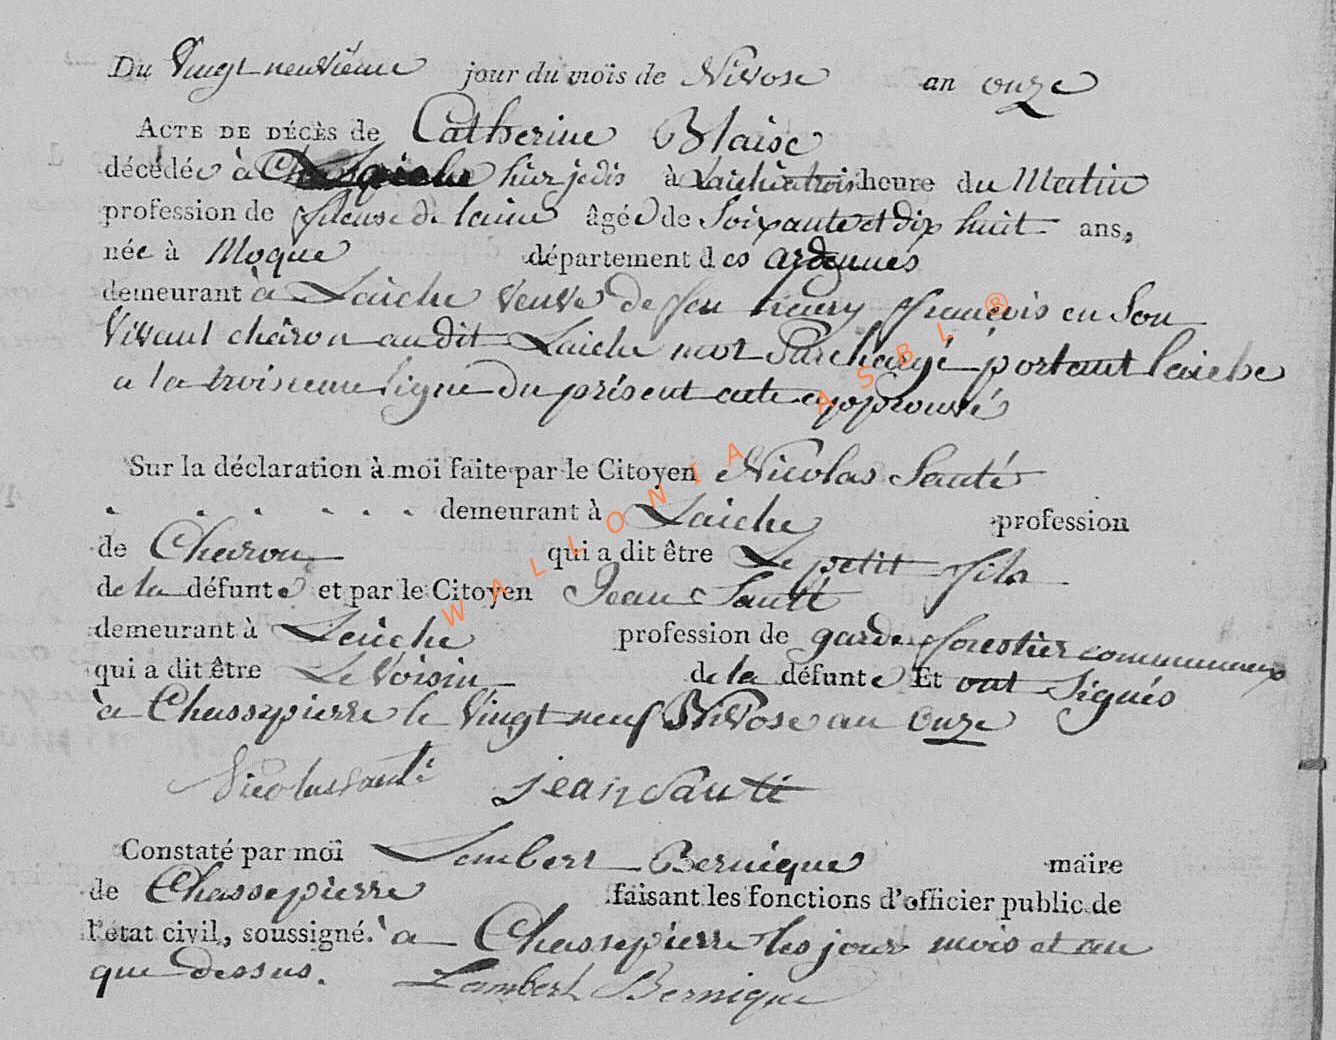 Du Vingt neuvieme jour du mois de Nivose an onze
ACTE DE DÉCÈS de Catherine Blaise
décédée à hier jedis à Laiche a trois heure du Matin
profession de fileuse de laine âgée de Soixante et dix huit ans,
née à Moque département des ardennes
demeurant à Laiche veuve de feu henry françois en Son
Vivant charon au dit Laiche mot Surchargé portant laiche
a la troisieme ligne du présent acte approuvé
Sur la déclaration à moi faite par le Citoyen Nicolas Sauté
. . . . . . . demeurant à Laiche profession
de Charon qui a dit être Le petit fils
de la défunte et par le Citoyen Jean Sauté
demeurant à Leiche profession de garde forestier communaux
qui a dit être Le Voisin de la défunte Et ont Signés
à Chassepierre le Vingt neuf Nivose an onze
Nicolas sauté jean sauté
Constaté par moi Lambert Bernique maire
de Chassepierre faisant les fonctions d'officier public de
l'etat civil, soussigné. à Chassepierre les jour mois et an
que dessus. Lambert Bernique
WALLONIA ASBL ®